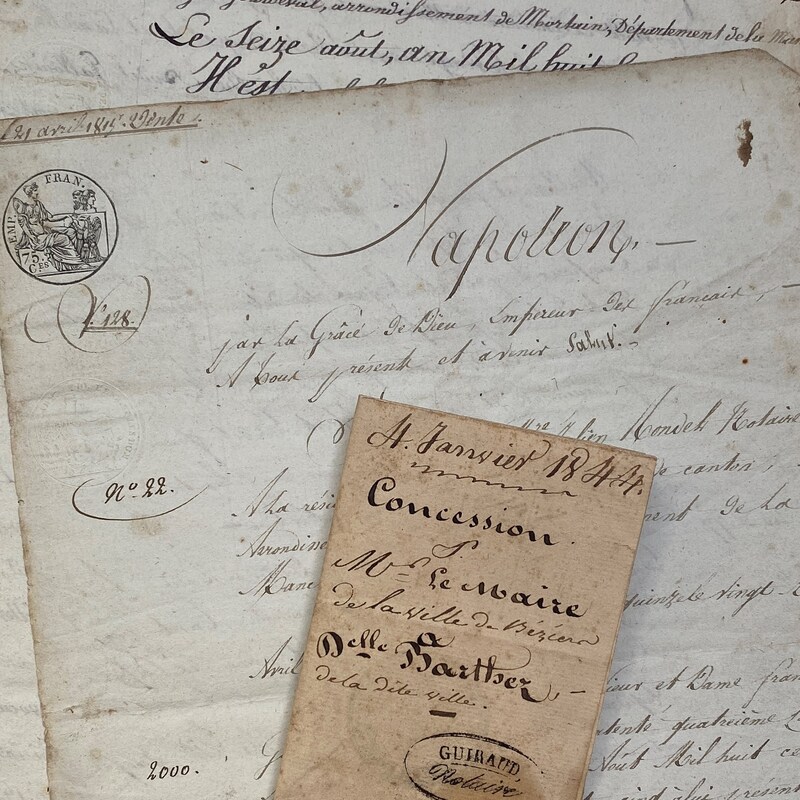 arrondissement de Mortain, Département de la
Le Seize août, an Mil huit
21 avril 1815. Vente.
EMP. FRAN.
75.
Ces
Napoleon,
V. 128.
par la Grâce de Dieu, Empereur des francais,
A tous présent et avenir Salut.
Notaire
canton,
No. 22.
A La
ment de La
Arrondi
Manc
quinze le vingt
Avril
ieur et Dame fran
quatrième
2000.
Aout Mil huit ce
4. Janvier 1844.
Concession
P.
Mr. Le Maire
de la ville de Béziers
a
Delle Barthez,
de la dite ville.
GUIRAUD
Notaire